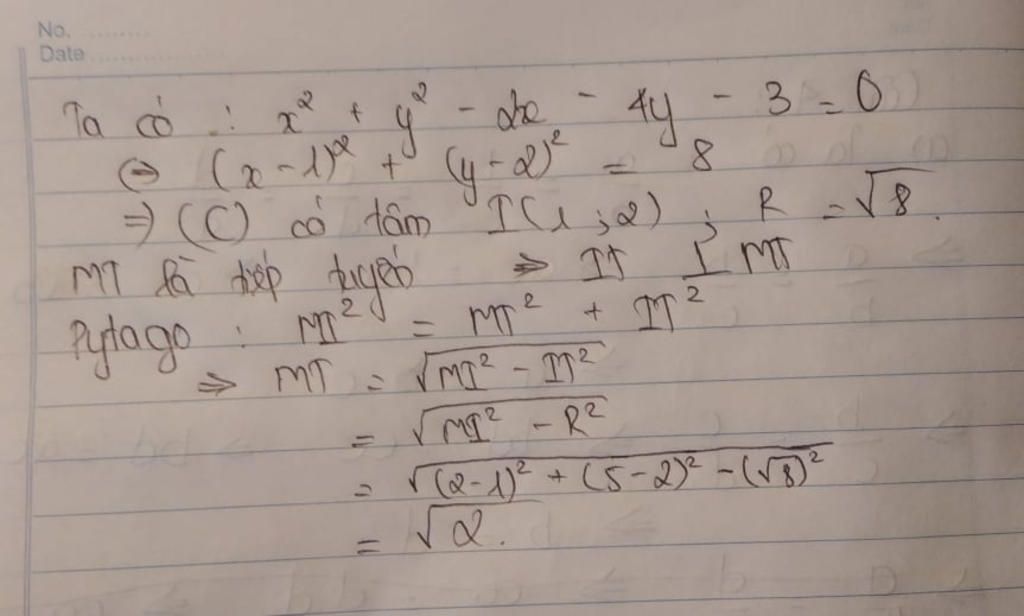 No. ..........
Date ....................
Ta có : x² + y² - 2x - 4y - 3 = 0
⇔ (x-1)² + (y-2)² = 8
⇒ (C) có tâm I(1;2) ; R = √8.
MT là tiếp tuyến ⇒ IT ⊥ MT
Pytago : MI² = MT² + IT²
⇒ MT = √(MI² - IT²)
= √(MI² - R²)
= √((2-1)² + (5-2)² - (√8)²)
= √2.